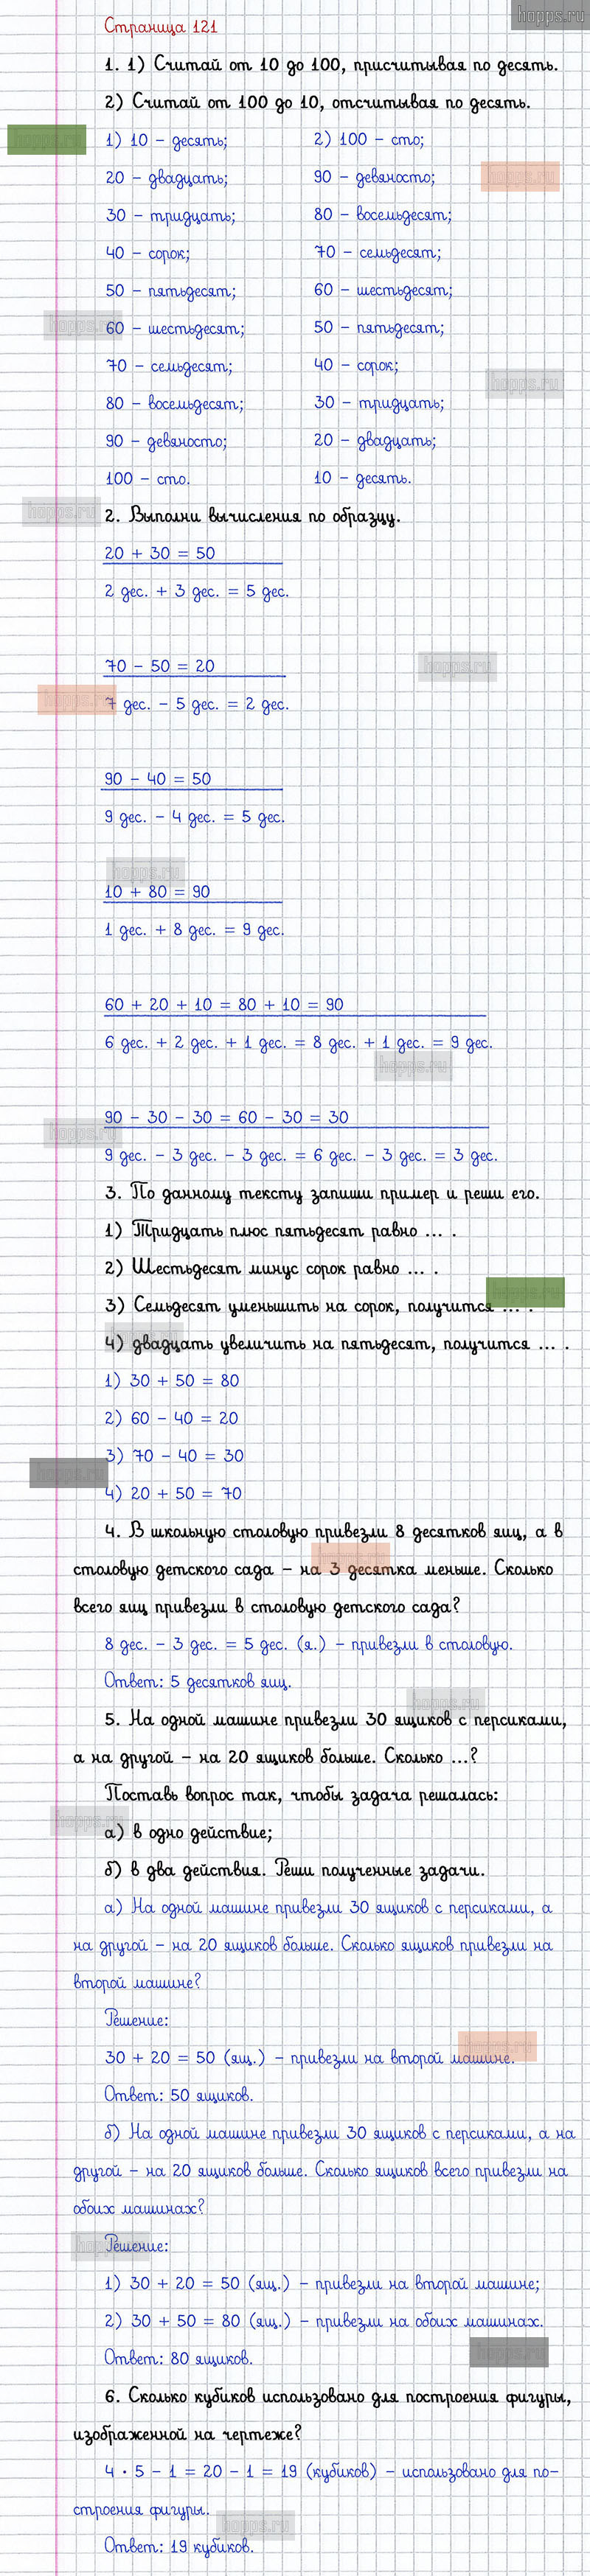 hopps.ru
Страница 121
1. 1) Считай от 10 до 100, присчитывая по десять.
2) Считай от 100 до 10, отсчитывая по десять.
hopps.ru
1) 10 – десять; 2) 100 – сто;
20 – двадцать; 90 – девяносто;
hopps.ru
30 – тридцать; 80 – восемьдесят;
40 – сорок; 70 – семьдесят;
50 – пятьдесят; 60 – шестьдесят;
hopps.ru
60 – шестьдесят; 50 – пятьдесят;
70 – семьдесят; 40 – сорок;
hopps.ru
80 – восемьдесят; 30 – тридцать;
90 – девяносто; 20 – двадцать;
100 – сто. 10 – десять.
hopps.ru
2. Выполни вычисления по образцу.
20 + 30 = 50
2 дес. + 3 дес. = 5 дес.
70 – 50 = 20
hopps.ru
hopps.ru
7 дес. – 5 дес. = 2 дес.
90 – 40 = 50
9 дес. – 4 дес. = 5 дес.
hopps.ru
10 + 80 = 90
1 дес. + 8 дес. = 9 дес.
60 + 20 + 10 = 80 + 10 = 90
6 дес. + 2 дес. + 1 дес. = 8 дес. + 1 дес. = 9 дес.
hopps.ru
90 – 30 – 30 = 60 – 30 = 30
hopps.ru
9 дес. – 3 дес. – 3 дес. = 6 дес. – 3 дес. = 3 дес.
3. По данному тексту запиши пример и реши его.
1) Тридцать плюс пятьдесят равно ... .
2) Шестьдесят минус сорок равно ... .
hopps.ru
3) Семьдесят уменьшить на сорок, получится ... .
4) двадцать увеличить на пятьдесят, получится ... .
1) 30 + 50 = 80
2) 60 – 40 = 20
3) 70 – 40 = 30
hopps.ru
4) 20 + 50 = 70
4. В школьную столовую привезли 8 десятков яиц, а в
столовую детского сада – на 3 десятка меньше. Сколько
всего яиц привезли в столовую детского сада?
8 дес. – 3 дес. = 5 дес. (я.) – привезли в столовую.
Ответ: 5 десятков яиц.
hopps.ru
5. На одной машине привезли 30 ящиков с персиками,
а на другой – на 20 ящиков больше. Сколько ...?
Поставь вопрос так, чтобы задача решалась:
hopps.ru
а) в одно действие;
б) в два действия. Реши полученные задачи.
а) На одной машине привезли 30 ящиков с персиками, а
на другой – на 20 ящиков больше. Сколько ящиков привезли на
второй машине?
Решение:
hopps.ru
30 + 20 = 50 (ящ.) – привезли на второй машине.
Ответ: 50 ящиков.
б) На одной машине привезли 30 ящиков с персиками, а на
другой – на 20 ящиков больше. Сколько ящиков всего привезли на
обоих машинах?
hopps.ru
Решение:
1) 30 + 20 = 50 (ящ.) – привезли на второй машине;
2) 30 + 50 = 80 (ящ.) – привезли на обоих машинах.
hopps.ru
Ответ: 80 ящиков.
6. Сколько кубиков использовано для построения фигуры,
изображенной на чертеже?
4 · 5 – 1 = 20 – 1 = 19 (кубиков) – использовано для по-
строения фигуры.
hopps.ru
Ответ: 19 кубиков.